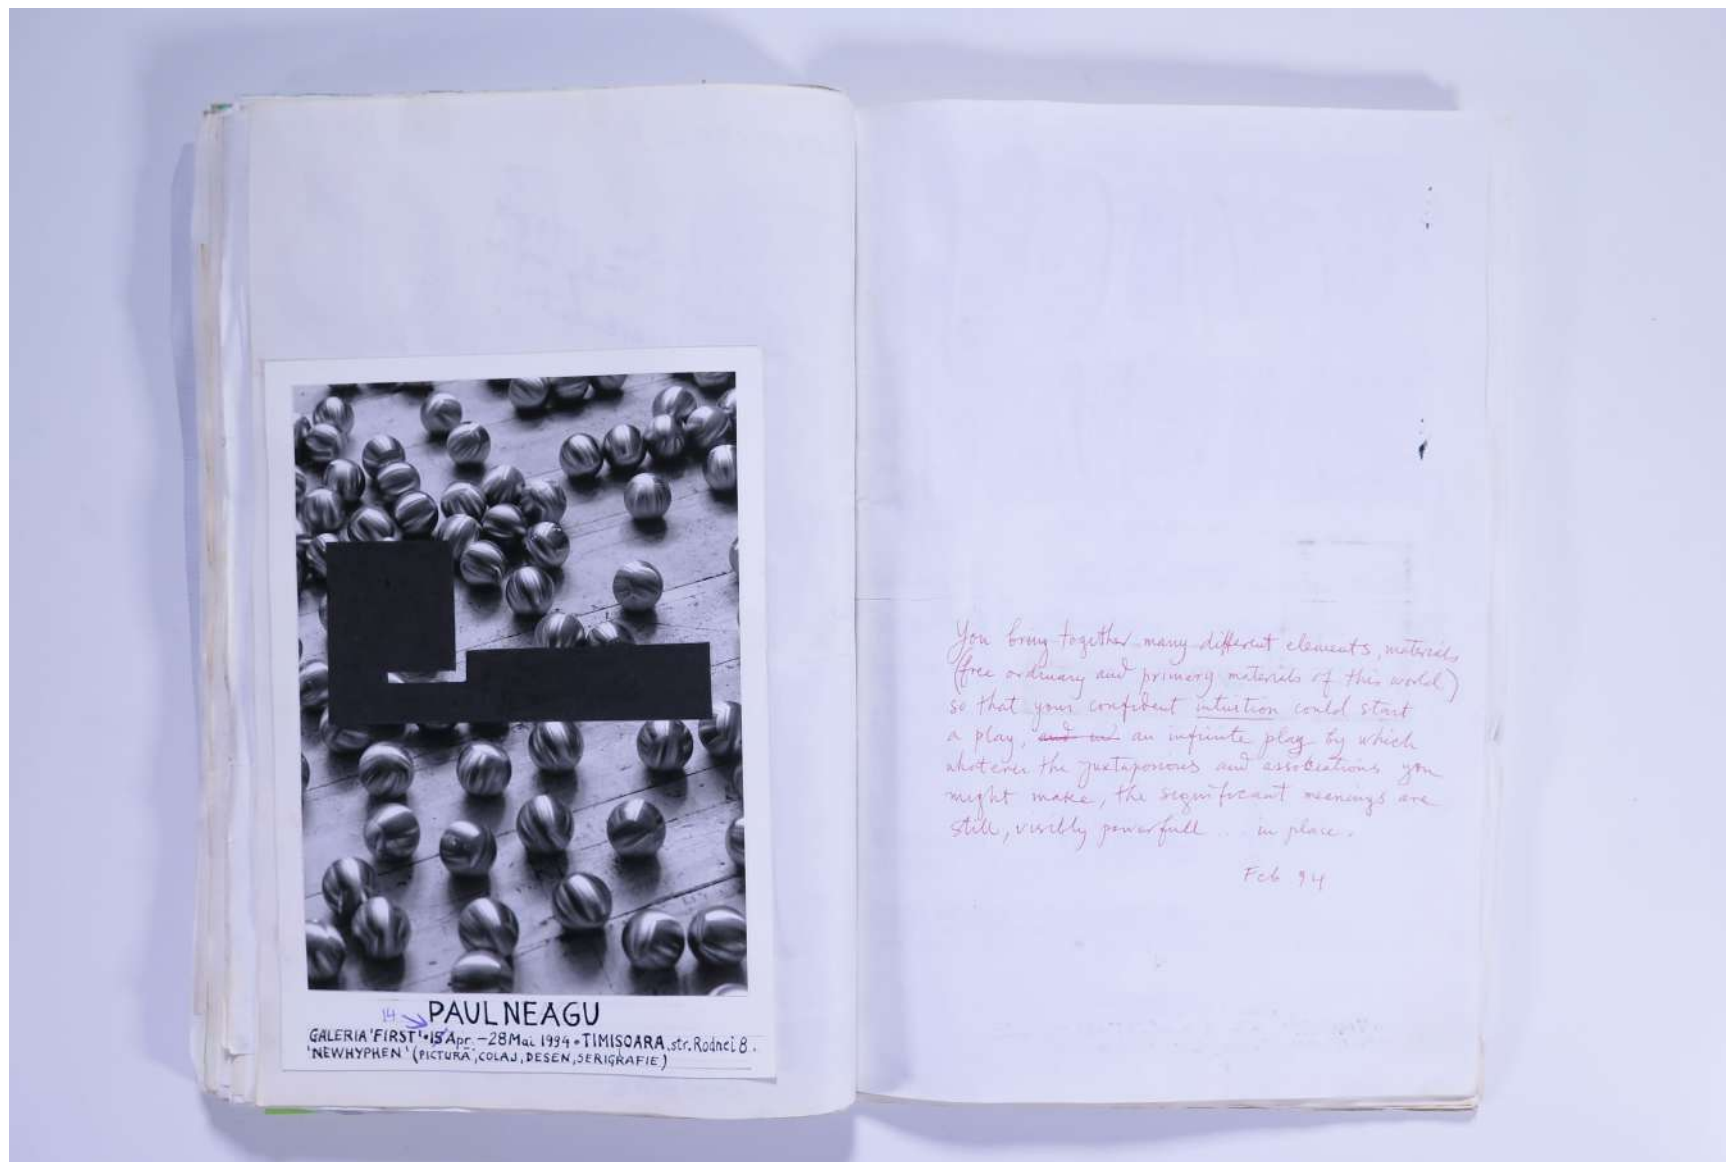 14
PAUL NEAGU
GALERIA 'FIRST' • 15 Apr. – 28 Mai 1994 • TIMIŞOARA, str. Rodnei 8.
'NEWHYPHEN' (PICTURA, COLAJ, DESEN, SERIGRAFIE)
You bring together many different elements, materials
(free ordinary and primary materials of this world)
so that your confident intuition could start
a play, and in an infinite play by which
whatever the juxtaposions and associations you
might make, the significant meanings are
still, visibly powerfull .. in place.
Feb 94